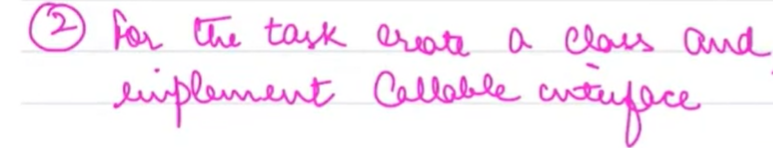 ② For the task create a class and
implement Callable interface